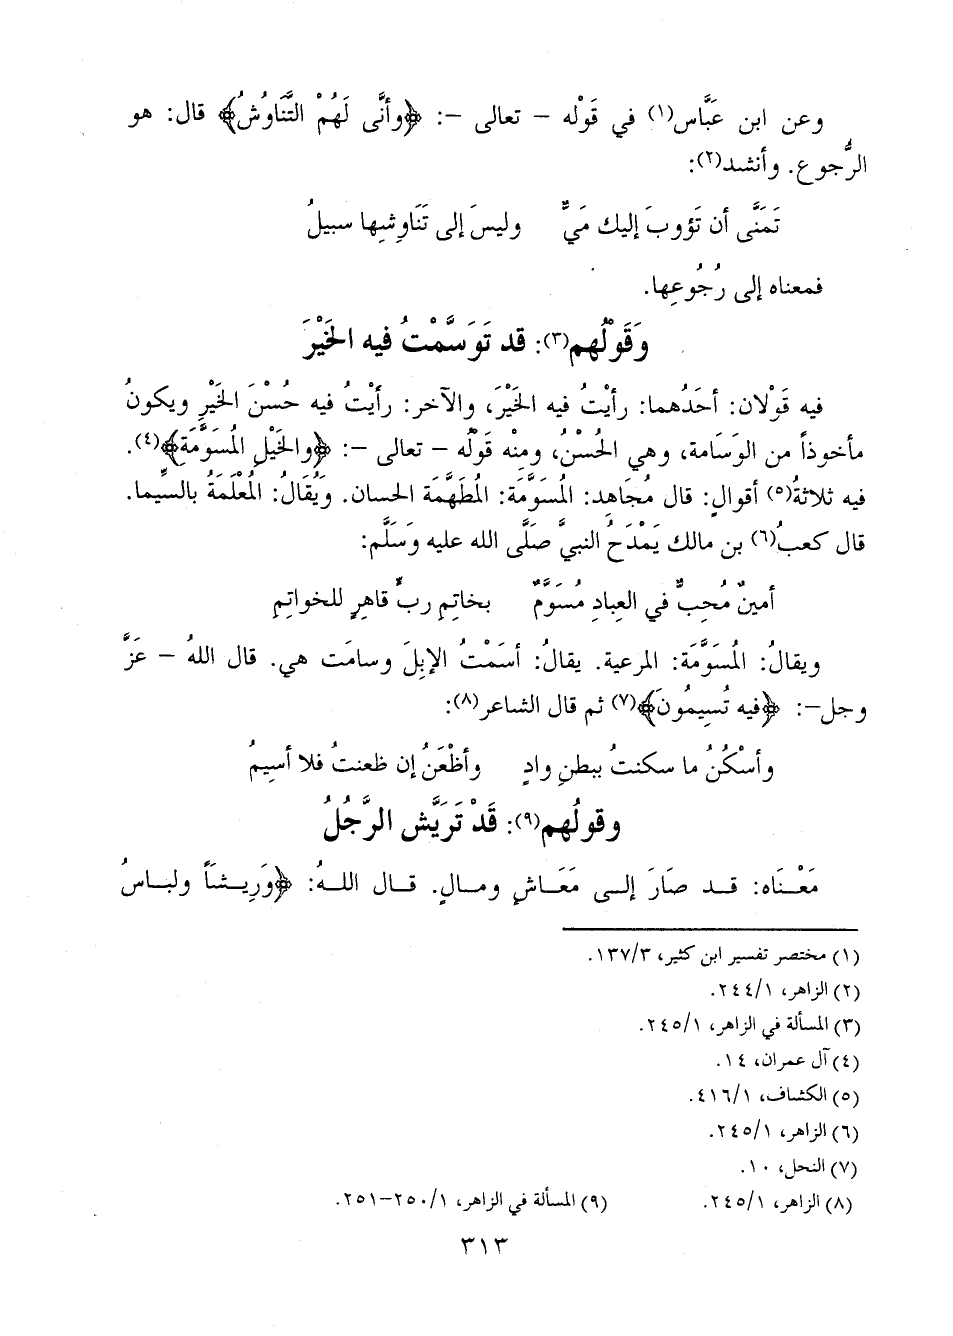 وعن ابن عَبَّاس(١) في قَوْله – تعالى –: ﴿وأَنَّى لَهُمْ التَّنَاوُشُ﴾ قال: هو
الرُّجوع. وأنشد(٢):
تَمَنَّى أن تَؤوبَ إليك مَيٌّ وليسَ إلى تَنَاوِشِها سبيلُ
فمعناه إلى رُجُوعِها.
وَقَوْلُهم(٣): قد تَوَسَّمْتُ فيه الخَيْرَ
فيه قَوْلان: أحَدُهما: رأيْتُ فيه الخَيْرَ، والآخر: رأيْتُ فيه حُسْنَ الخَيْرِ ويكونُ
مأخوذاً من الوَسَامة، وهي الحُسْنُ، ومِنْه قَوْلُه – تعالى –: ﴿والخَيْلِ المُسَوَّمَةِ﴾(٤).
فيه ثلاثةُ(٥) أقوالٍ: قال مُجَاهِد: المُسَوَّمَة: المُطَهَّمَة الحسان. وَيُقَالُ: المُعْلَمَةُ بالسِّيما.
قال كعبُ(٦) بن مالك يَمْدَحُ النبيَّ صَلَّى الله عليه وَسَلَّم:
أمينٌ مُحِبٌّ في العِبادِ مُسَوَّمٌ بخاتِمِ ربٍّ قاهِرٍ للخواتِمِ
ويقالُ: المُسَوَّمَة: المرعية. يقالُ: أسَمْتُ الإبِلَ وسامَت هي. قال اللهُ – عَزَّ
وجل–: ﴿فيه تُسِيمُونَ﴾(٧) ثم قال الشاعر(٨):
وأسْكُنُ ما سكنتُ ببطنِ وادٍ وأظْعَنُ إن ظعنتُ فلا أسِيمُ
وقولُهم(٩): قَدْ تَرَيَّش الرَّجُلُ
مَعْنَاه: قد صَارَ إلى مَعَاشٍ ومالٍ. قال اللهُ: ﴿وَرِيشَاً ولباسُ
(١) مختصر تفسير ابن كثير، ١٣٧/٣.
(٢) الزاهر، ٢٤٤/١.
(٣) المسألة في الزاهر، ٢٤٥/١.
(٤) آل عمران، ١٤.
(٥) الكشاف، ٤١٦/١.
(٦) الزاهر، ٢٤٥/١.
(٧) النحل، ١٠.
(٨) الزاهر، ٢٤٥/١. (٩) المسألة في الزاهر، ٢٥٠/١–٢٥١.
٣١٣